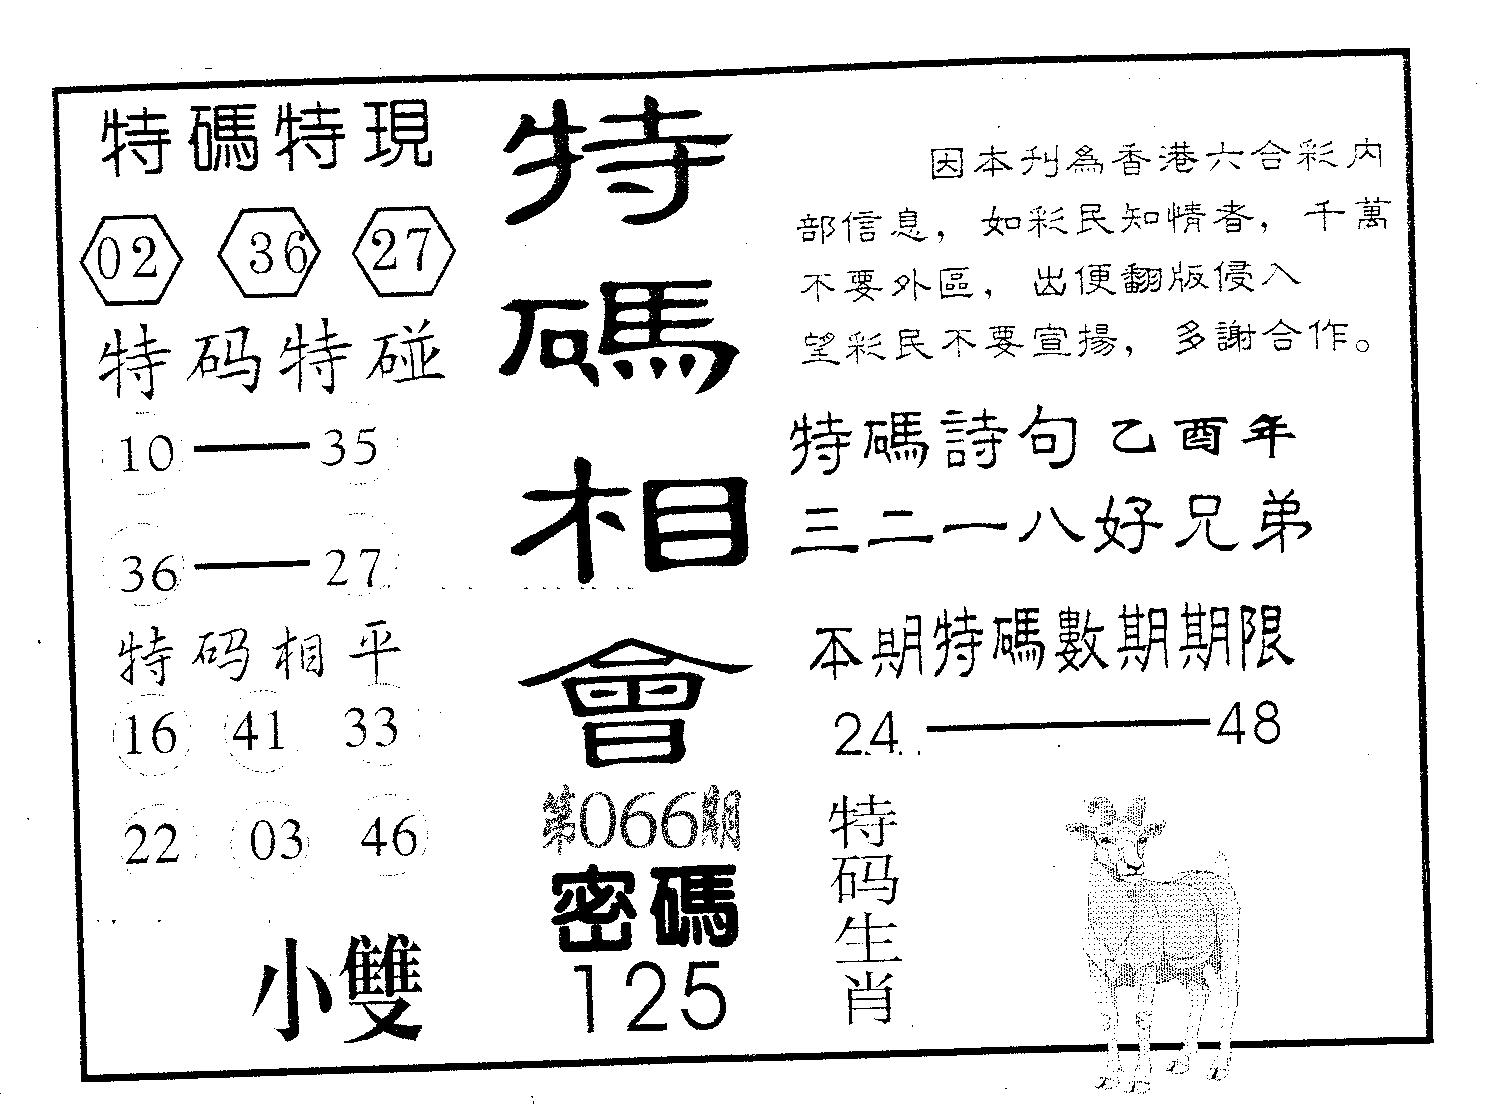 特碼特現
02 36 27
特码特碰
10 — 35
36 — 27
特码相平
16 41 33
22 03 46
小雙
特碼相會
第066期
密碼
125
因本刊為香港六合彩內
部信息，如彩民知情者，千萬
不要外區，出便翻版侵入
望彩民不要宣揚，多謝合作。
特碼詩句乙酉年
三二一八好兄弟
本期特碼數期期限
24 — 48
特码生肖